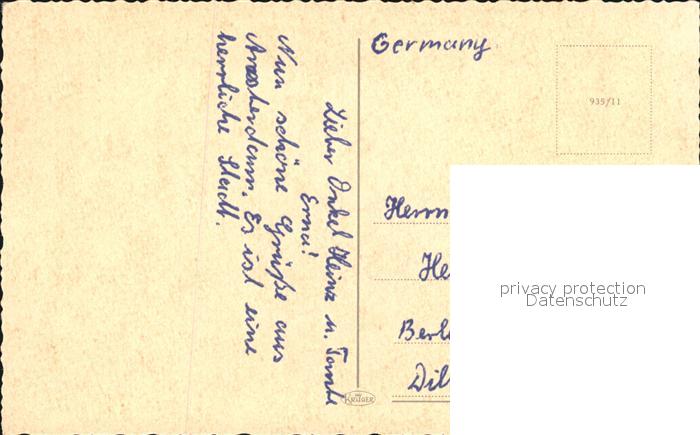 Lieber Onkel Heinz u. Tante
Erna!
Nun schöne Grüße aus
Amsterdam. Es ist eine
herrliche Stadt.
Germany
935/11
Herrn
He
Berl
Dil
KRÜGER
privacy protection
Datenschutz